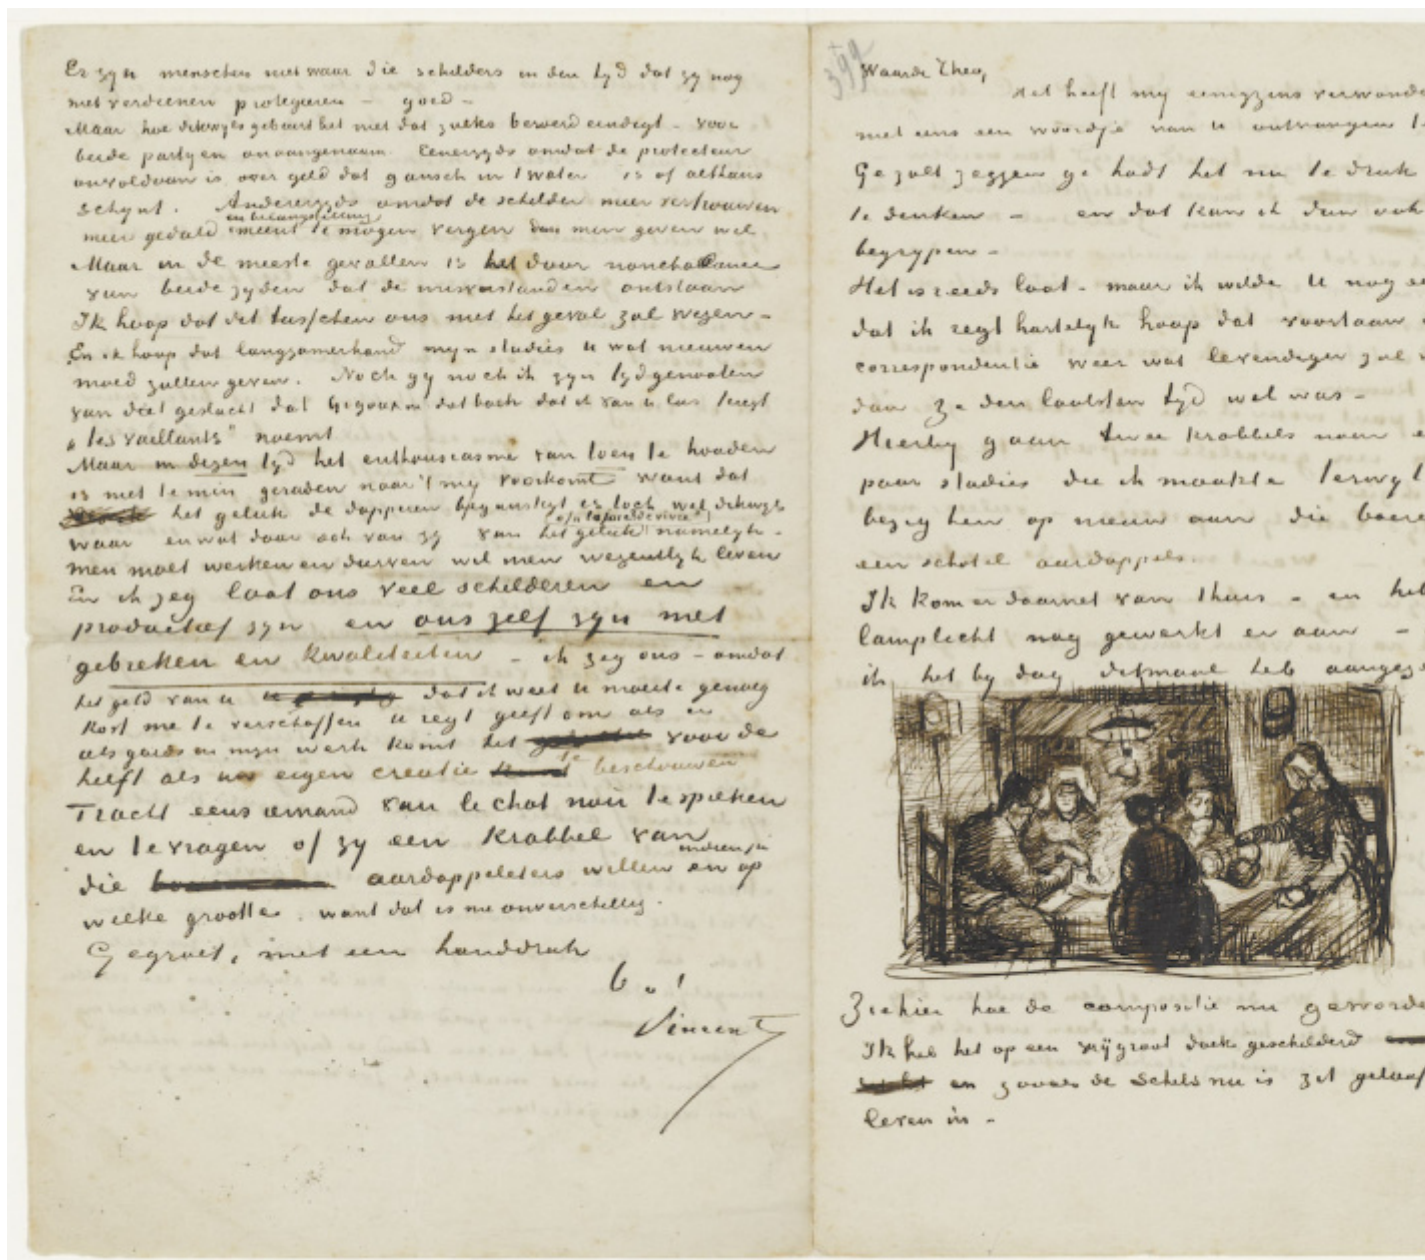 Er zyn menschen niet waar die schilders in den tyd dat zy nog
niet verdienen protegeeren – goed –
Maar hoe dikwyls gebeurt het niet dat zulks beroerd eindigt – voor
beide partyen onaangenaam. Eenerzyds omdat de protecteur
onvoldaan is over geld dat gansch in 't water is of althans
schynt. Andererzyds omdat de schilder meer vertrouwen
en belangstelling
meer geduld meent te mogen vergen dan men geven wil
Maar in de meeste gevallen is het door nonchalance
van beide zyden dat de misverstanden ontstaan
Ik hoop dat dit tusschen ons niet het geval zal wezen –
En ik hoop dat langzamerhand myn studies u wat nieuwen
moed zullen geven. Noch gy noch ik zyn tydgenooten
van dat geslacht dat Gigoux in dat boek dat ik van u las teregt
„les vaillants” noemt
Maar in dezen tyd het enthousiasme van toen te houden
is niet te min geraden naar 't my voorkomt want dat
het geluk de dapperen begunstigt is toch wel dikwyls
waar en wat daar ook van zy van het geluk namelyk –
men moet werken en durven wil men wezentlyk leven
En ik zeg laat ons veel schilderen en
productief zyn en ons zelf zyn met
gebreken en kwaliteiten – ik zeg ons – omdat
het geld van u dat ik weet u moeite genoeg
kost me te verschaffen u regt geeft om als er
als goeds in myn werk komt het voor de
helft als uw eigen creatie te beschouwen
Tracht eens iemand van le chat noir te spreken
en te vragen of zy een krabbel van
die aardappeleters willen en indien ja op
welke grootte. want dat is me onverschillig.
Gegroet, met een handdruk
b. t.
Vincent
399
Waarde Theo,
Het heeft my eenigzins verwonde
niet eens een woordje van u ontvangen
Ge zult zeggen ge hadt het nu te druk
te denken – en dat kan ik dan ook
begrypen –
Het is reeds laat – maar ik wilde u nog
dat ik regt hartelyk hoop dat voortaan
correspondentie weer wat levendiger zal
dan ze den laatsten tyd wel was –
Hierby gaan twee krabbels naar
paar studies die ik maakte terwyl
bezig ben op nieuw aan die boere
een schotel aardappels.
Ik kom er daarnet van thuis – en heb
lamplicht nog gewerkt er aan –
ik het by dag ditmaal heb aangeze
Ziehier hoe de compositie nu geworde
Ik heb het op een vrÿ groot doek geschilderd
en zooals de schets nu is zit geloof
leven in –